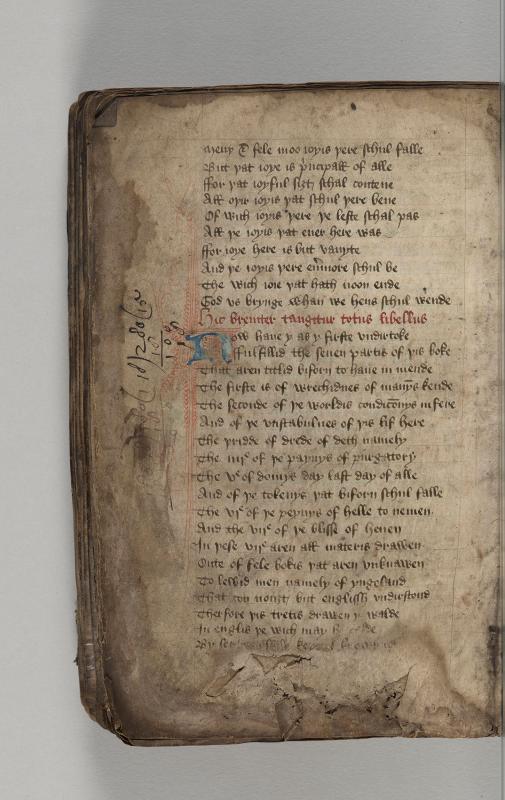 Meny & fele moo ioyis þere schul falle
But þat ioye is principall of alle
ffor þat ioyful siȝt schal contene
All oþir ioyis þat schul þere bene
Of wich ioyis þere þe leste schal pas
All þe ioyis þat euer here was
ffor ioye here is but vanyte
And þe ioyis þere euermore schul be
The wich ioie þat hath noon ende
God us brynge whan we hens schul wende
Hic breuiter tangitur totus libellus
Now haue y as y firste vndirtoke
ffulfillid the seuen partis of þis boke
That aren titlid biforn to haue in mende
The firste is of wrechidnes of mannys kende
The seconde of þe worldis condicōnys in fere
And of þe vnstabulnes of þis lif here
The þridde of drede of deth namely
The iiijᵉ of þe paynys of purgatory
The vᵉ of domys day last day of alle
And of þe tokenys þat biforn schul falle
The vjᵉ of þe peynys of helle to nemen
And the vijᵉ of þe blisse of heuen
In þese vijᵉ aren all materis drawen
Oute of fele bokis þat aren vnknawen
To lewid men namely of yngeland
That con nouȝt but englissh vndirstond
Therfore þis tretis drawen y walde
In englis þe wich may be
By